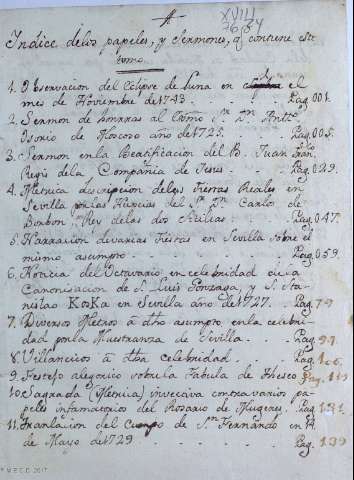 A
XVIII
Indice delos papeles, y Sermones, q contiene este
tomo.
1. Observacion del Eclipse de Luna en el
mes de Noviembre de 1743. Pag. 001.
2. Sermon de honrras al Sr. Dn. Antto.
Osorio de Moscoso año de 1725. Pag. 005.
3. Sermon en la Beatificacion del B. Juan Fran.co
Regis dela Compañia de Jesus. Pag. 029.
4. Metrica descripcion delas fiestas Reales en
Sevilla por las Nupcias del Sr. Dn. Carlos de
Borbon, Rey delas dos Sicilias. Pag. 047.
5. Narracion de varias fiestas en Sevilla sobre el
mismo asumpto. Pag. 059.
6. Noticia del Octavario en celebridad dela
Canonisacion de S. Luis Gonzaga, y S. Sta-
nislao KosKa en Sevilla año de 1727. Pag. 79
7. Diversos Metros a dho asumpto, en la celebri-
dad por la Maestranza de Sevilla. Pag. 97.
8. Villancicos â dha celebridad. Pag. 106.
9. Festejo alegorico sobre la Fabula de Theseo Pag. 119
10. Sagrada (Metrica) invectiva contra varios pa-
peles infamatorios del Rosario de Mugeres. Pag. 131.
11. Translacion del Cuerpo de Sn. Fernando en 14
de Mayo de 1729. Pag. 139
M.E.C.D. 2017